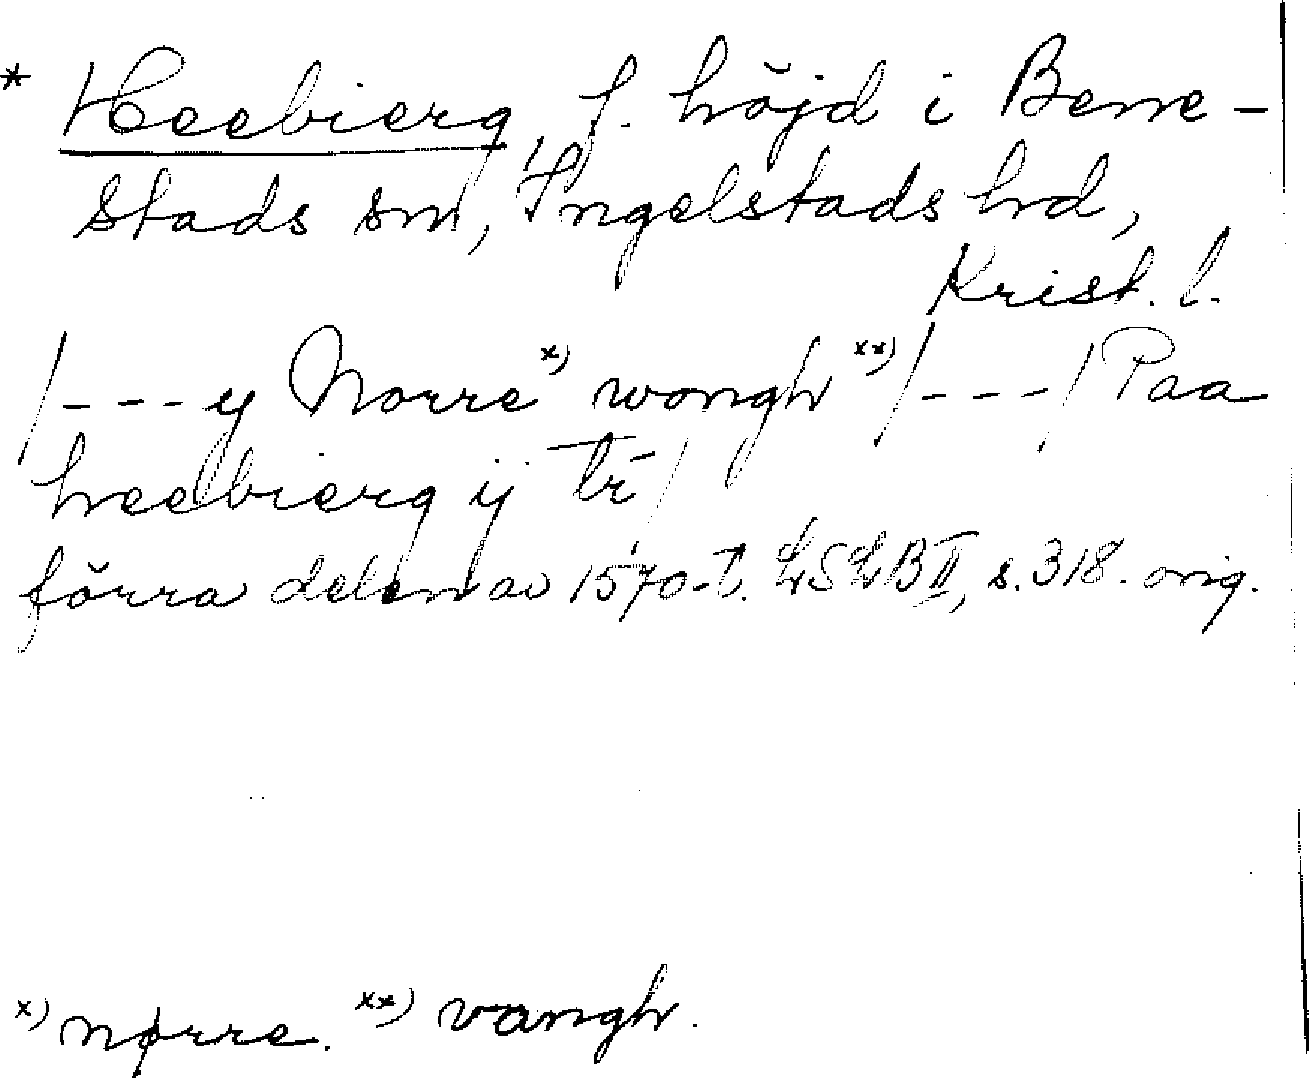 * Heebierg, f. höjd i Benne-
stads sn, Ingelstads hrd,
Krist. l.
/---y Norre x) wongh xx) /---/ Paa
heebierg ij tr̄/
förra delen av 1570-t. LSLB II, s. 318. orig.
x) nørre. xx) vangh.